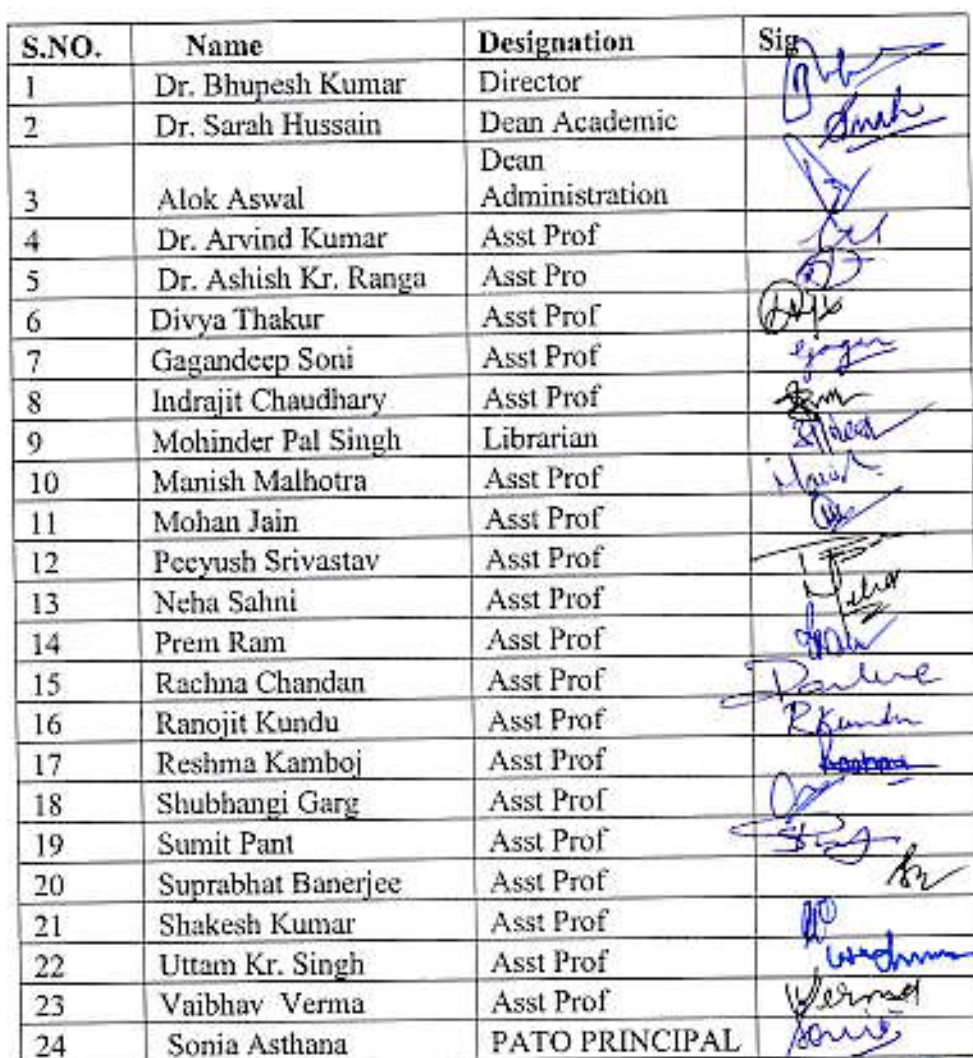 S.NO. Name Designation Sig
1 Dr. Bhupesh Kumar Director
2 Dr. Sarah Hussain Dean Academic
Dean
3 Alok Aswal Administration
4 Dr. Arvind Kumar Asst Prof
5 Dr. Ashish Kr. Ranga Asst Pro
6 Divya Thakur Asst Prof
7 Gagandeep Soni Asst Prof
8 Indrajit Chaudhary Asst Prof
9 Mohinder Pal Singh Librarian
10 Manish Malhotra Asst Prof
11 Mohan Jain Asst Prof
12 Peeyush Srivastav Asst Prof
13 Neha Sahni Asst Prof
14 Prem Ram Asst Prof
15 Rachna Chandan Asst Prof
16 Ranojit Kundu Asst Prof R Kundu
17 Reshma Kamboj Asst Prof
18 Shubhangi Garg Asst Prof
19 Sumit Pant Asst Prof
20 Suprabhat Banerjee Asst Prof
21 Shakesh Kumar Asst Prof
22 Uttam Kr. Singh Asst Prof
23 Vaibhav Verma Asst Prof
24 Sonia Asthana PA TO PRINCIPAL Sonia